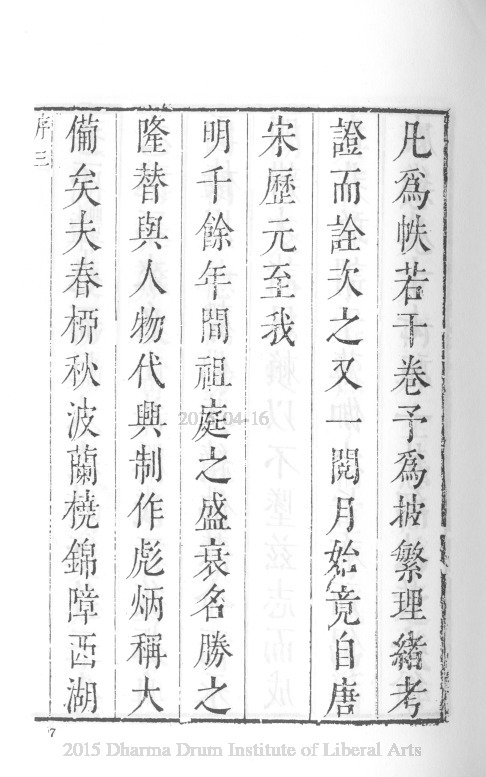 凡爲帙若干卷予爲披繁理緒考
證而詮次之又一閱月始竟自唐
宋歷元至我
明千餘年間祖庭之盛衰名勝之
隆替與人物代興制作彪炳稱大
備矣夫春桺秋波蘭橈錦障西湖
序三
2015-04-16
7
2015 Dharma Drum Institute of Liberal Arts